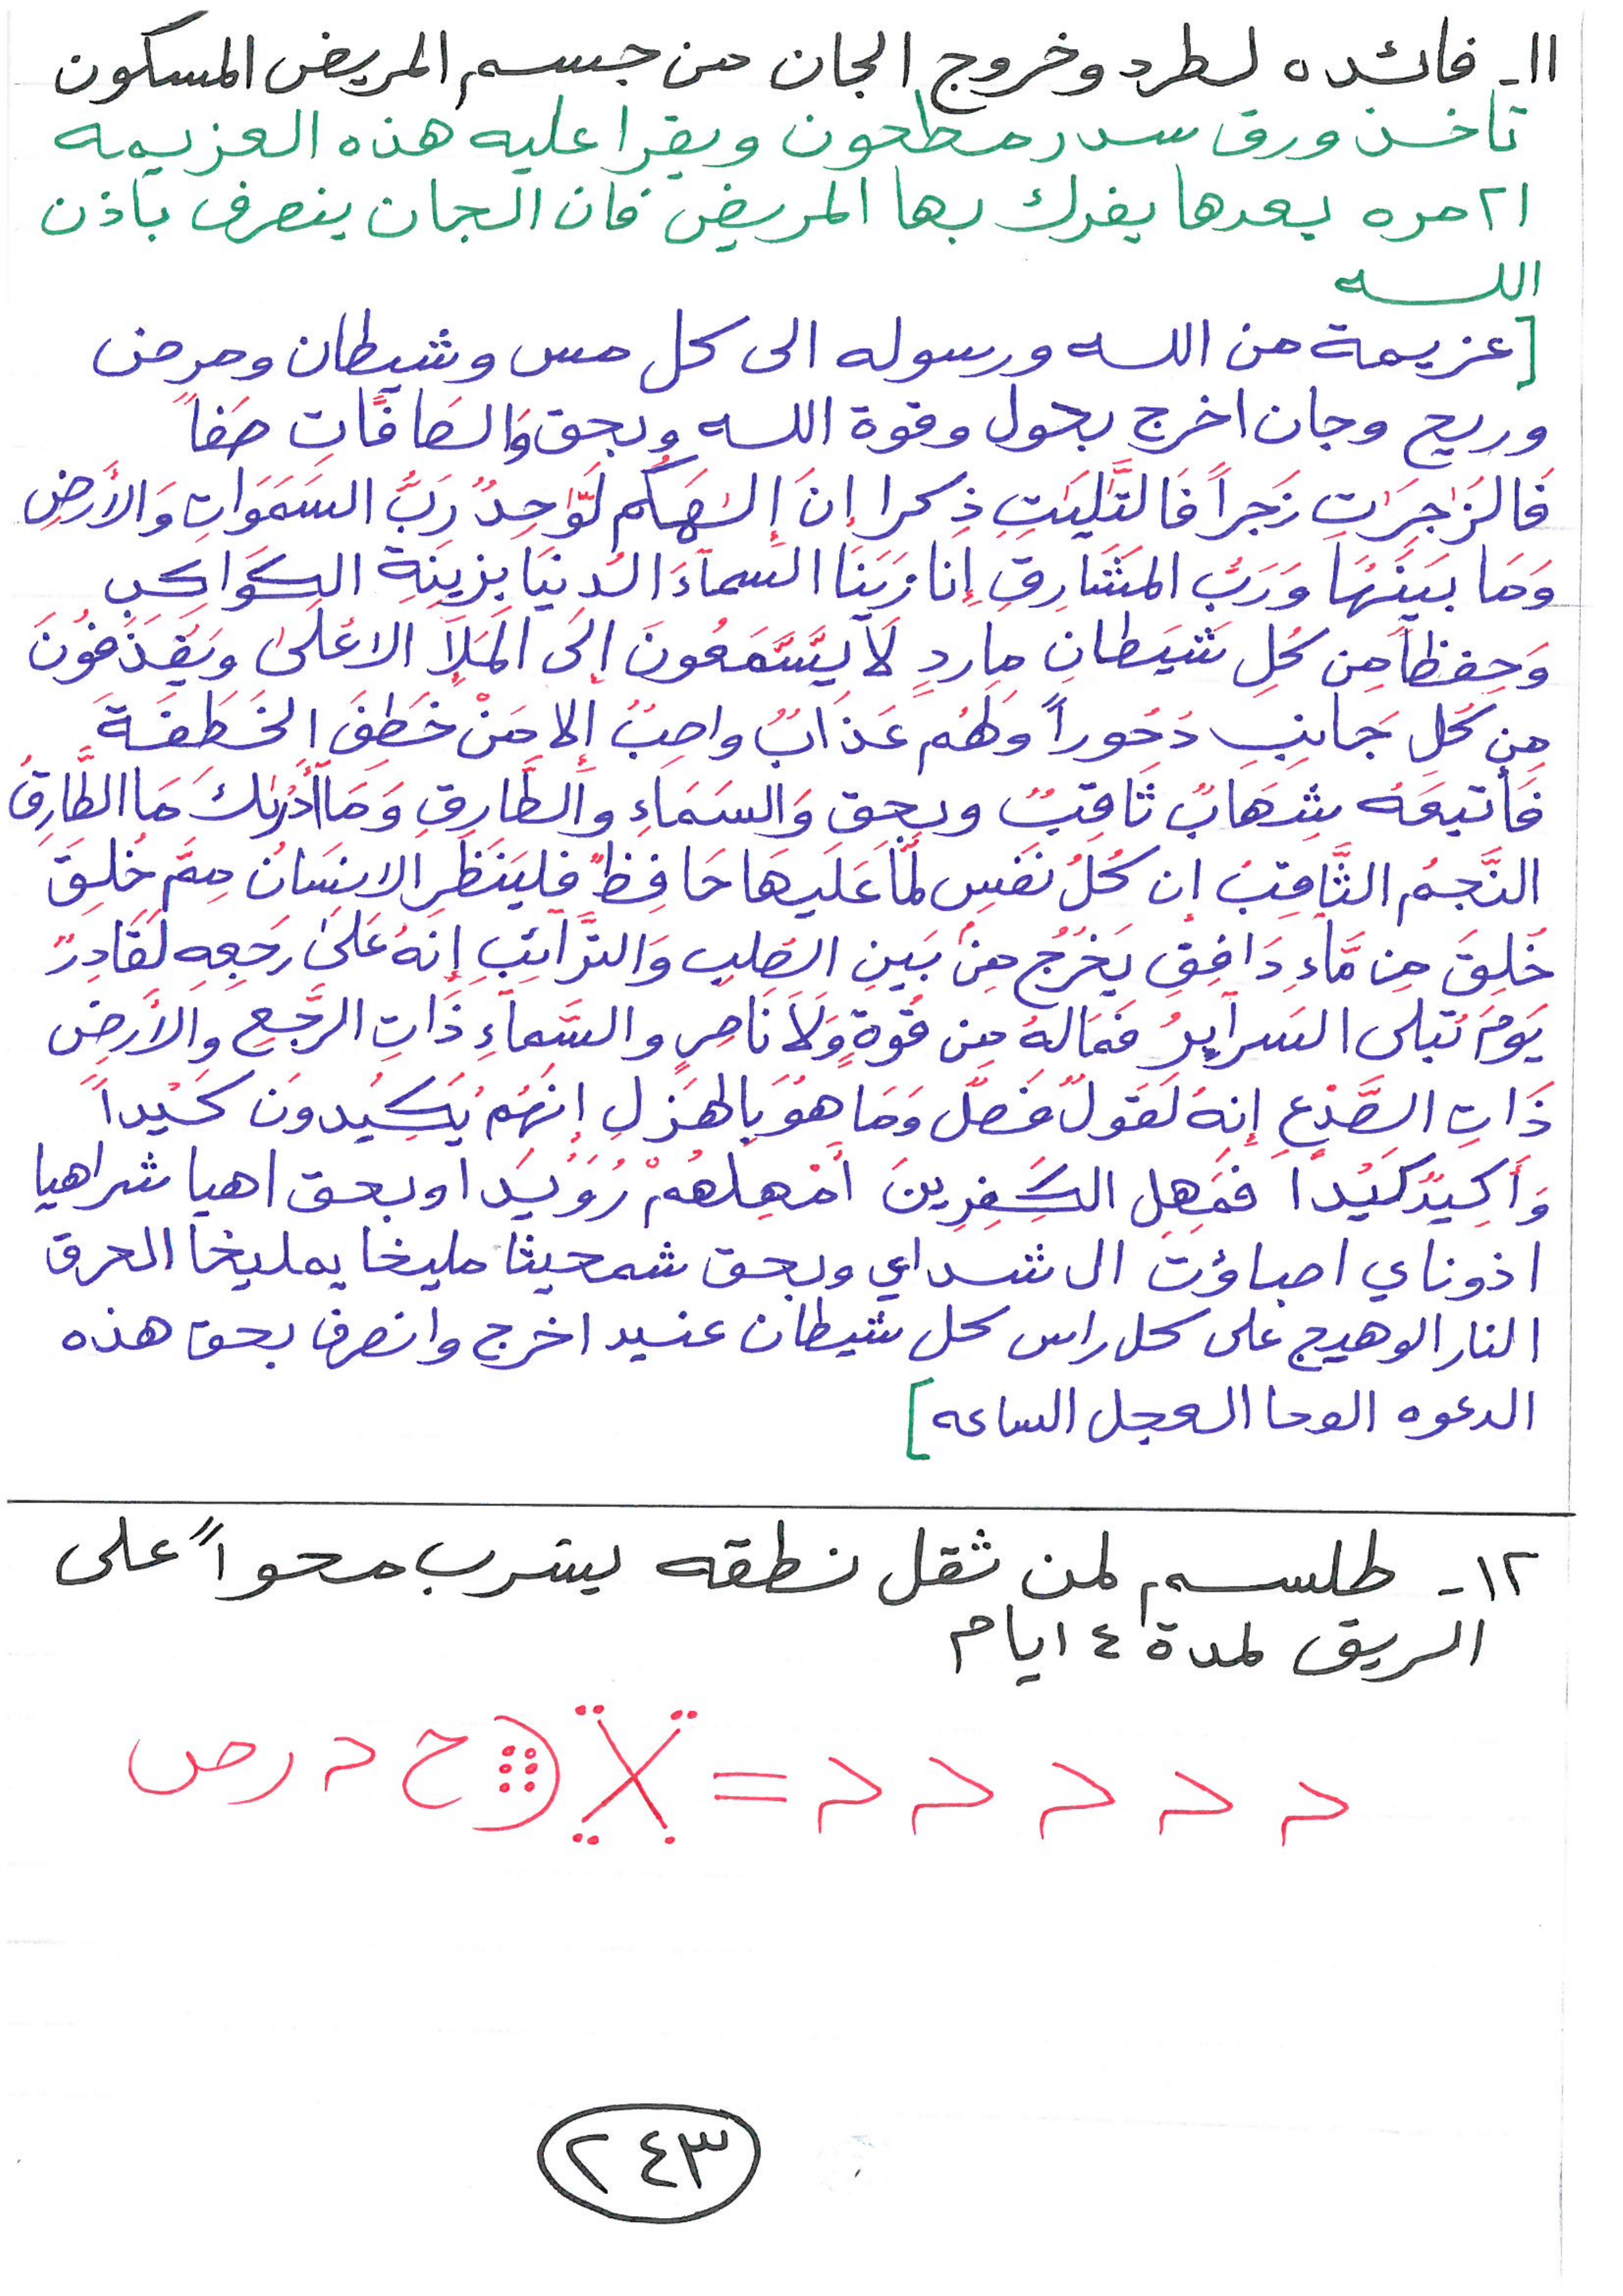 ١١ـ فائده لطرد وخروج الجان من جسم المريض المسكون
تاخذ ورق سدر مطحون ويقرا عليه هذه العزيمه
٢١ مره بعدها يفرك بها المريض فان الجان ينصرف باذن
الله
[عزيمة من الله ورسوله الى كل مس وشيطان ومرض
وريح وجان اخرج بحول وقوة الله وبحق وَالصَافَّاتِ صَفاً
فَالزَٰجِرَٰتِ زَجراً فَالتَّٰلِيَٰتِ ذِكرا إنَ إِلَٰهَكُم لَوَٰحِدٌ رَبُّ السَمَوَاتِ وَالأَرَضِ
وَمَا بَينَهُمَا وَرَبُ المَشَارِقِ إِنا زَيَنَا السَماءَ الدُنيَا بِزِينَةِ الكَوَاكِبِ
وَحِفظاً مِن كُلِ شَيطانٍ مارِدٍ لَا يَسَّمَعُونَ إلَى المَلَإِ الاعْلَىٰ وَيُقذَفُونَ
مِن كُلِ جَانِبٍ دُحُوراً وَلَهُم عَذَابٌ واصِبٌ إِلا مَنْ خَطِفَ الخَطفَةَ
فَأَتبَعَهُ شِهَابٌ ثَاقِبٌ وبحق وَالسَمَاءِ وَالطَّارِقِ وَمَا أَدْرَىٰكَ مَا الطَّارِقُ
النَّجمُ الثَّاقِبُ إن كُلُ نَفسٍ لَمَّا عَلَيهَا حَافِظٌ فَليَنظُرِ الانِسَانُ مِمَّ خُلِقَ
خُلِقَ مِن مَّاءٍ دَافِقٍ يَخرُجُ مِن بَينِ الصُلبِ وَالتَّرَائبِ إِنَهُ عَلَىٰ رَجعِهِ لَقَادِرٌ
يَومَ تُبلى السَرَآيِرُ فَمَا لَهُ مِن قُوةٍ وَلَا نَاصِرٍ والسَّمَآءِ ذَاتِ الرَّجعِ وَالأَرضِ
ذَاتِ الصَّدْعِ إِنهُ لَقَولٌ فَصلٌ وَمَا هُوَ بِالهَزلِ إِنَهُم يَكِيُدونَ كَيْداً
وَأَكِيدُ كَيْداً فَمَهِلِ الكَٰفِرِينَ أَمْهِلهُمْ رُوَيَدا وبحق اهيا شراهيا
اذوناي اصباؤت ال شداي وبحق شمحيثا مليخا يمليخا الحرق
النار الوهيج على كل راس كل شيطان عنيد اخرج وانصرف بحق هذه
الدعوه الوحا العجل الساعه]
١٢ـ طلسم لمن ثقل نطقه يشرب محواً على
الريق لمدة ٤ ايام
٢٤٣